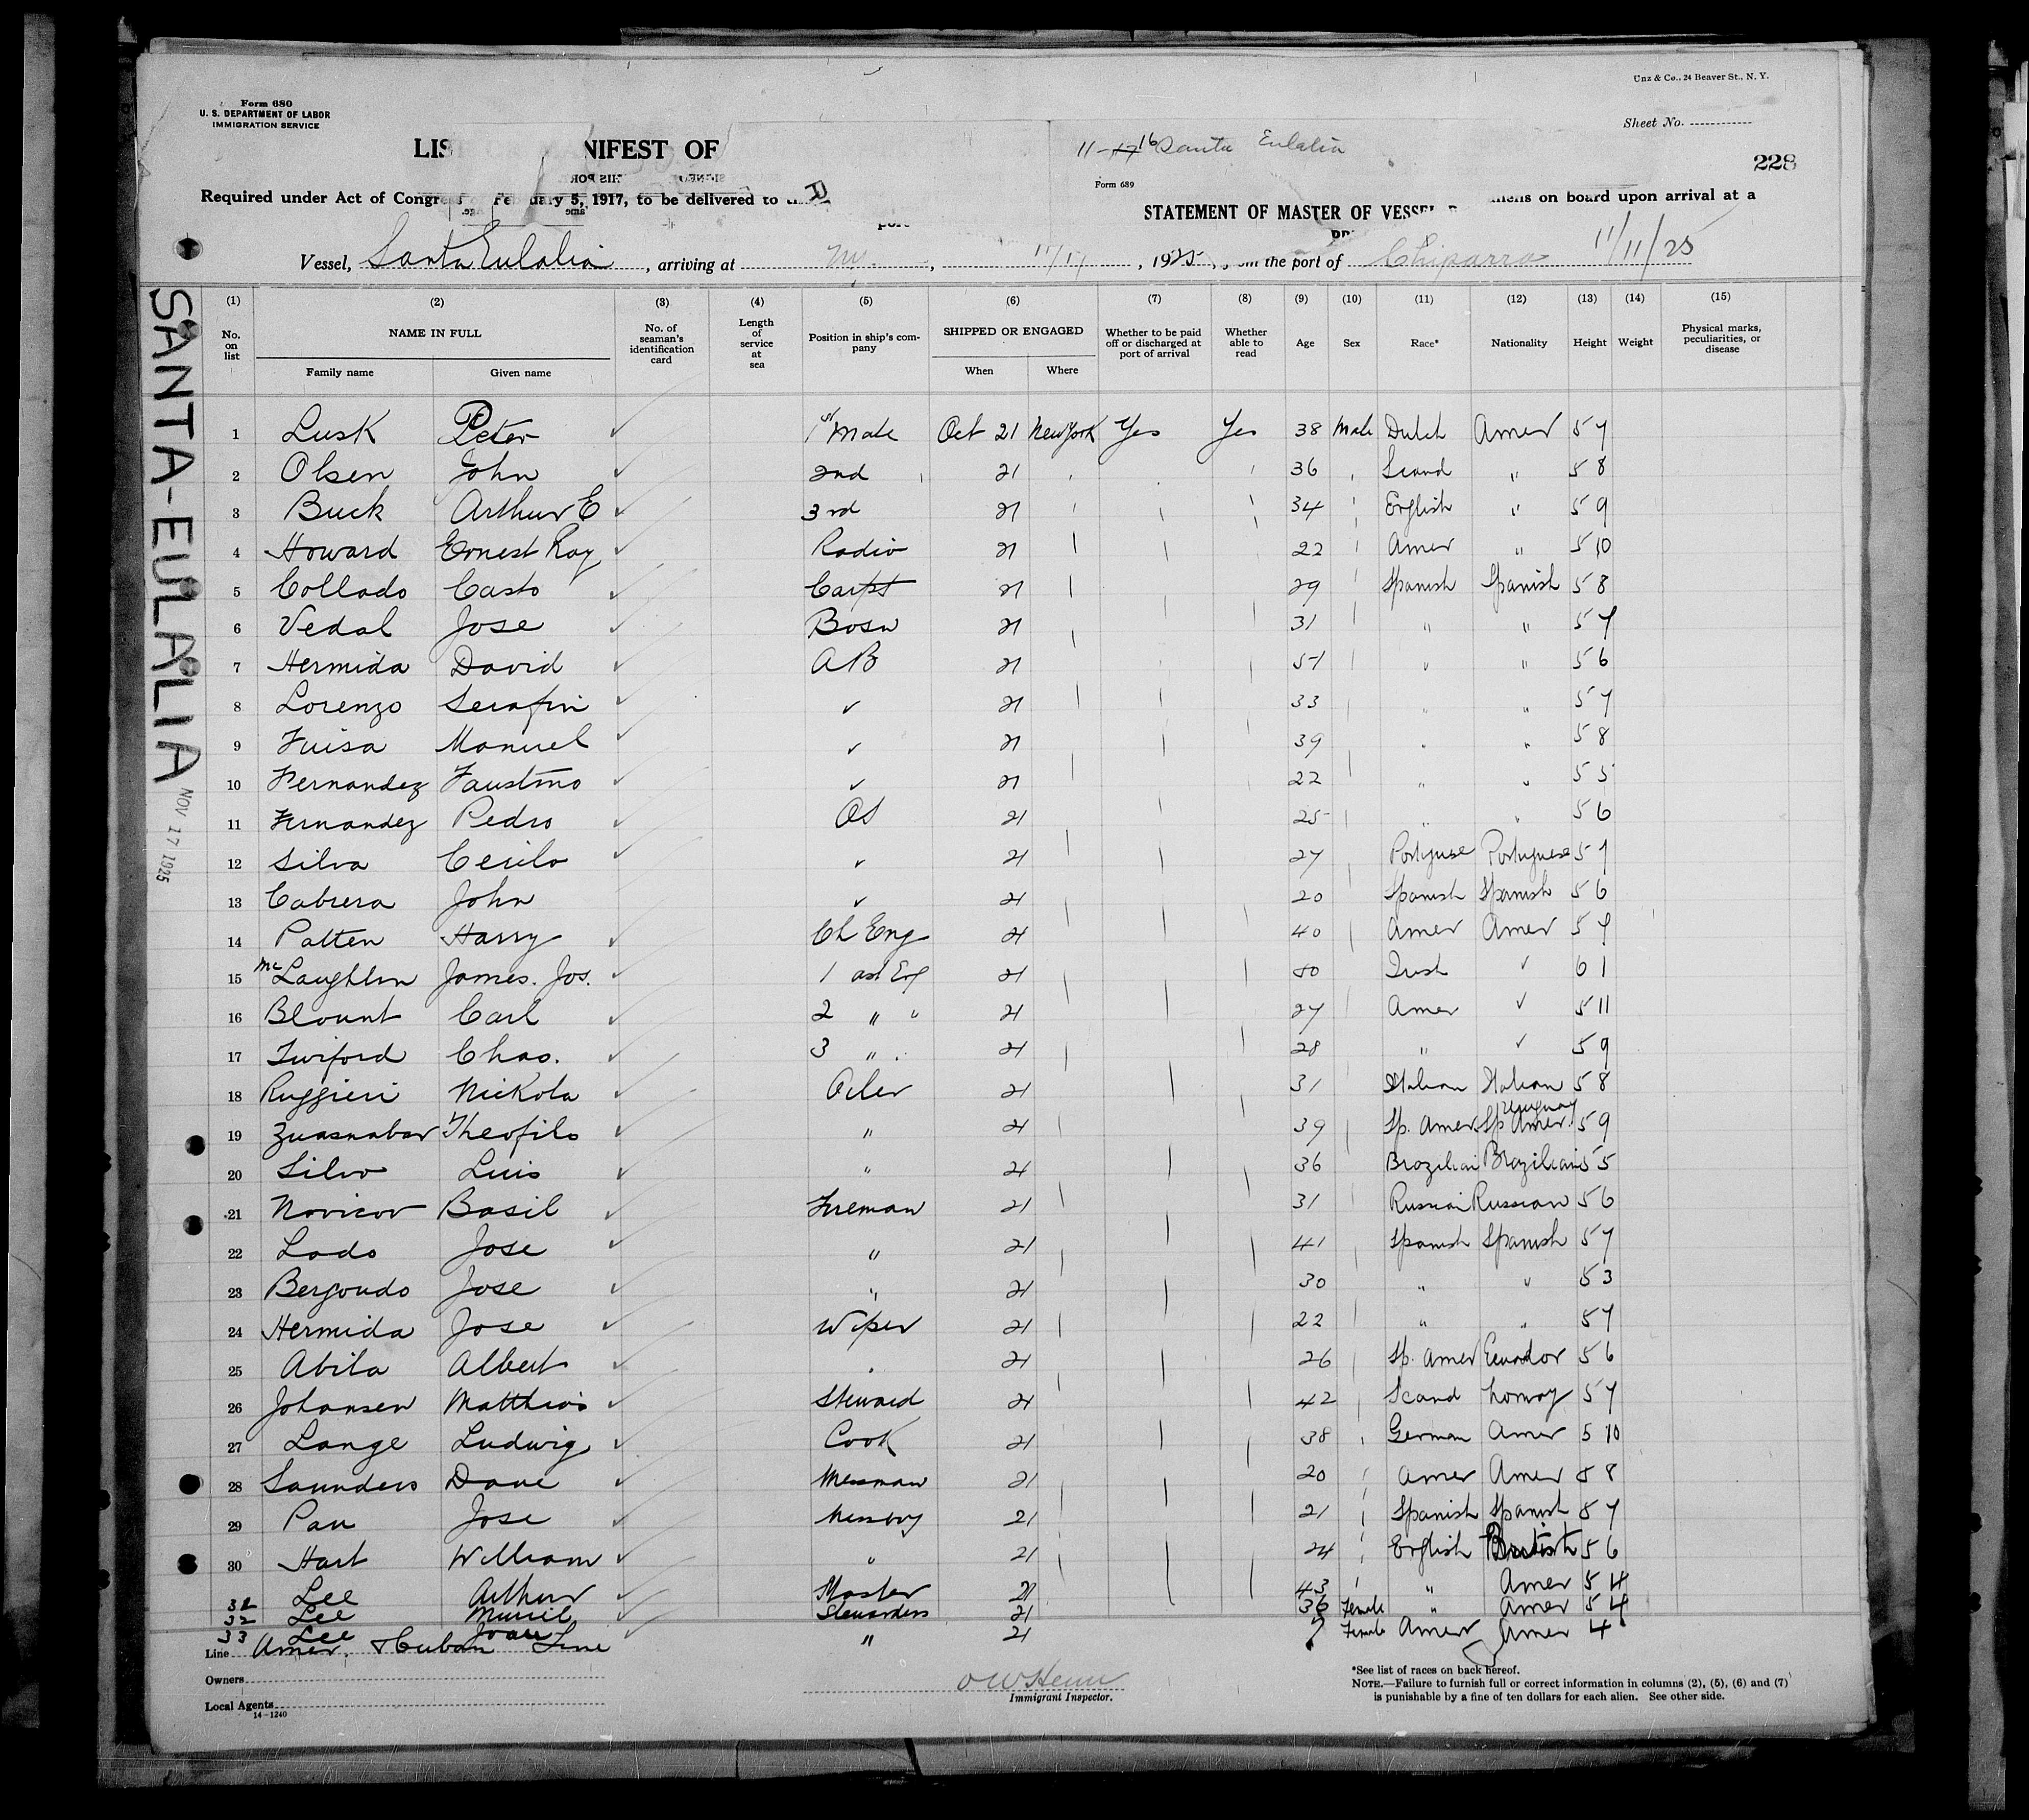 Unz & Co., 24 Beaver St., N. Y.
Form 680
U. S. DEPARTMENT OF LABOR
IMMIGRATION SERVICE
Sheet No.
LIS NIFEST OF
11-17 16 Santa Eulalia
228
Form 689
Required under Act of Congress February 5, 1917, to be delivered to
STATEMENT OF MASTER OF VESSEL
aliens on board upon arrival at a
Vessel, Santa Eulalia, arriving at NY., 11/17, 1925, from the port of Chiparra 11/11/25
SANTA-EULALIA
NOV 17 1925
(1) (2) (3) (4) (5) (6) (7) (8) (9) (10) (11) (12) (13) (14) (15)
No. on list NAME IN FULL Family name Given name No. of seaman's identification card Length of service at sea Position in ship's company SHIPPED OR ENGAGED When Where Whether to be paid off or discharged at port of arrival Whether able to read Age Sex Race* Nationality Height Weight Physical marks, peculiarities, or disease
1 Lusk Peter ✓ 1st Mate Oct 21 New York Yes Yes 38 Male Dutch Amer 5 7
2 Olsen John ✓ 2nd 21 36 Scand " 5 8
3 Buck Arthur E ✓ 3rd 21 34 English " 5 9
4 Howard Ernest Roy ✓ Radio 21 22 Amer " 5 10
5 Collado Casto ✓ Carpt 21 29 Spanish Spanish 5 8
6 Vedal Jose ✓ Bosn 21 31 " " 5 7
7 Hermida David ✓ AB 21 51 " " 5 6
8 Lorenzo Serafin ✓ ✓ 21 33 " " 5 7
9 Fuisa Manuel ✓ ✓ 21 39 " " 5 8
10 Fernandez Faustino ✓ ✓ 21 22 " " 5 5
11 Fernandez Pedro ✓ OS 21 25 " " 5 6
12 Silva Cerilo ✓ ✓ 21 27 Portuguse Portuguese 5 7
13 Cabrera John ✓ 21 20 Spanish Spanish 5 6
14 Patten Harry ✓ Ch Eng 21 40 Amer Amer 5 9
15 McLaughlin James. Jos. ✓ 1 ast Eng 21 Irish ✓ 6 1
16 Blount Carl ✓ 2 " " 21 27 Amer ✓ 5 11
17 Twiford Chas. ✓ 3 " 21 28 " ✓ 5 9
18 Ruggieri Nickola ✓ Oiler 21 31 Italian Italian 5 8
19 Zuasnabar Theofilo ✓ " 21 39 Sp. Amer Sp Amer. Uruguay 5 9
20 Silva Luis ✓ " 21 36 Brazilian Brazilian 5 5
21 Novicov Basil ✓ Fireman 21 31 Russian Russian 5 6
22 Lado Jose ✓ " 21 41 Spanish Spanish 5 7
23 Bergondo Jose ✓ " 21 30 " " 5 3
24 Hermida Jose ✓ Wiper 21 22 " " 5 7
25 Abila Albert ✓ " 21 26 Sp. Amer Ecuador 5 6
26 Johansen Matthias ✓ Steward 21 42 Scand Norway 5 7
27 Lange Ludwig ✓ Cook 21 38 German Amer 5 10
28 Saunders Dave ✓ Messman 21 20 Amer Amer 5 8
29 Pan Jose ✓ Messboy 21 21 Spanish Spanish 5 7
30 Hart William ✓ " 21 24 English British 5 6
31 Lee Arthur ✓ Master 21 43 " Amer 5 4
32 Lee Muriel ✓ Stewardess 21 36 Female " Amer 5 4
33 Lee Joan ✓ " 21 7 Female Amer Amer 4
Line Amer. & Cuban Line
Owners
Local Agents
14-1240
Immigrant Inspector.
*See list of races on back hereof.
NOTE.—Failure to furnish full or correct information in columns (2), (5), (6) and (7)
is punishable by a fine of ten dollars for each alien. See other side.